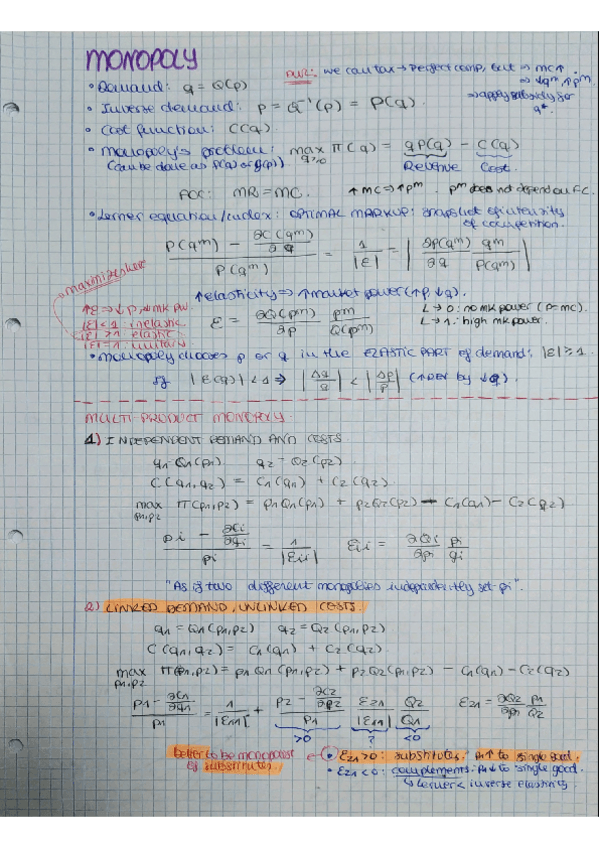 MONOPOLY
DWL: we can tax → perfect comp, but ⇒ mc↑
⇒ ↓qᵐ, ↑pᵐ
⇒ apply subsidy for q*.
• Demand: q = Q(p)
• Inverse demand: p = Q⁻¹(p) = P(q).
• Cost function: C(q).
• Monopoly's problem: max q≥0 Π(q) = qP(q) - C(q)
(can be done as P(q) or q(p)) Revenue Cost.
FOC: MR = MC. ↑MC ⇒ ↑pᵐ. pᵐ does not depend on FC.
• Lerner equation/index: OPTIMAL MARKUP: snapshot of intensity of competition.
(P(qᵐ) - ∂C(qᵐ)/∂q) / P(qᵐ) = 1/|ε| = | ∂P(qᵐ)/∂q qᵐ/P(qᵐ) |
↑elasticity ⇒ ↑market power (↑p, ↓q).
L → 0: no mk power (p=mc).
L → 1: high mk power.
↑ε ⇒ ↓p, mk pw.
|ε| < 1 inelastic
|ε| > 1 elastic
|ε| = 1 unitary
ε = ∂Q(pᵐ)/∂p pᵐ/Q(pᵐ)
• Monopoly chooses p or q in the ELASTIC PART of demand: |ε| ≥ 1.
If |ε(q)| < 1 ⇒ |Δq/q| < |Δp/p| (↑ by ↓q).
MULTI-PRODUCT MONOPOLY.
1) INDEPENDENT DEMAND AND COSTS
q₁ = Q₁(p₁) q₂ = Q₂(p₂)
C(q₁,q₂) = C₁(q₁) + C₂(q₂)
max p₁,p₂ Π(p₁,p₂) = p₁Q₁(p₁) + p₂Q₂(p₂) - C₁(q₁) - C₂(q₂)
(pi - ∂Ci/∂qi) / pi = 1/|εii| εii = ∂Qi/∂pi pi/qi
"As if two different monopolies independently set pi".
2) LINKED DEMAND, UNLINKED COSTS.
q₁ = Q₁(p₁,p₂) q₂ = Q₂(p₁,p₂)
C(q₁,q₂) = C₁(q₁) + C₂(q₂).
max p₁,p₂ Π(p₁,p₂) = p₁Q₁(p₁,p₂) + p₂Q₂(p₁,p₂) - C₁(q₁) - C₂(q₂)
(p₁ - ∂C₁/∂q₁) / p₁ = 1/|ε₁₁| + (p₂ - ∂C₂/∂q₂) / p₁ ε₂₁/|ε₁₁| Q₂/Q₁ ε₂₁ = ∂Q₂/∂p₁ p₁/Q₂
>0 ? <0
better to be monopolist of substitutes.
• ε₂₁ > 0: substitutes. p₁↑ to single good.
• ε₂₁ < 0: complements. p₁↓ to single good.
↳ Lerner < inverse elasticity.